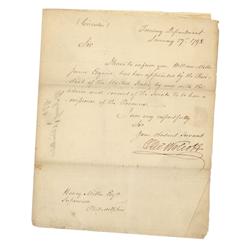 (Circular)
Treasury Department
January 17th 1798
Sir
I have to inform you William Miller
Junior Esquire, has been appointed by the Presi
dent of the United States by and with the
advice and consent of the Senate to be Com
missioner of the Revenue.
I am very respectfully
Sir
Your Obedient Servant
Oliv Wolcott
Henry Miller Esqr
Supervisor